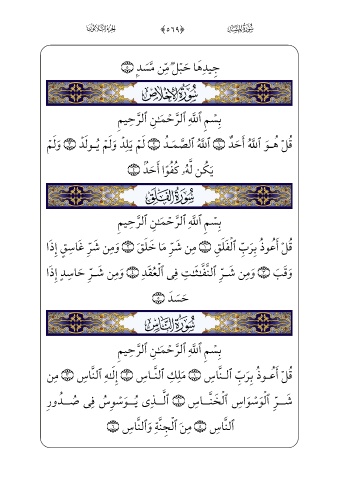 سُورَةُ المَسَد ﴿٥٦٩﴾ الجزء الثلاثون
جِيدِهَا حَبْلٌ مِّن مَّسَدٍۭ
سُورَةُ الإِخْلَاصِ
بِسْمِ ٱللَّهِ ٱلرَّحْمَـٰنِ ٱلرَّحِيمِ
قُلْ هُوَ ٱللَّهُ أَحَدٌ ۝ ٱللَّهُ ٱلصَّمَدُ ۝ لَمْ يَلِدْ وَلَمْ يُولَدْ ۝ وَلَمْ
يَكُن لَّهُۥ كُفُوًا أَحَدٌۢ ۝
سُورَةُ الفَلَقِ
بِسْمِ ٱللَّهِ ٱلرَّحْمَـٰنِ ٱلرَّحِيمِ
قُلْ أَعُوذُ بِرَبِّ ٱلْفَلَقِ ۝ مِن شَرِّ مَا خَلَقَ ۝ وَمِن شَرِّ غَاسِقٍ إِذَا
وَقَبَ ۝ وَمِن شَرِّ ٱلنَّفَّـٰثَـٰتِ فِى ٱلْعُقَدِ ۝ وَمِن شَرِّ حَاسِدٍ إِذَا
حَسَدَ ۝
سُورَةُ النَّاسِ
بِسْمِ ٱللَّهِ ٱلرَّحْمَـٰنِ ٱلرَّحِيمِ
قُلْ أَعُوذُ بِرَبِّ ٱلنَّاسِ ۝ مَلِكِ ٱلنَّاسِ ۝ إِلَـٰهِ ٱلنَّاسِ ۝ مِن
شَرِّ ٱلْوَسْوَاسِ ٱلْخَنَّاسِ ۝ ٱلَّذِى يُوَسْوِسُ فِى صُدُورِ
ٱلنَّاسِ ۝ مِنَ ٱلْجِنَّةِ وَٱلنَّاسِ ۝